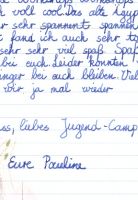 Workshops Workshops
ch voll cool. Das alte Ägyp
er sehr spannent spannen
t fand ich auch sehr to
sehr sehr viel spaß Spaß
bei euch. Leider konnten
änger bei euch bleiben. Viel
wir ja mal wieder
ss, liebes Jugend-Camp
Eure Pauline